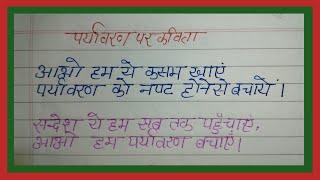 पर्यावरण पर कविता
आओ हम ये कसम खाएं
पर्यावरण को नष्ट होनेसे बचायें।
सन्देश ये हम सब तक पहुँचाएं,
आओ हम पर्यावरण बचाएं।